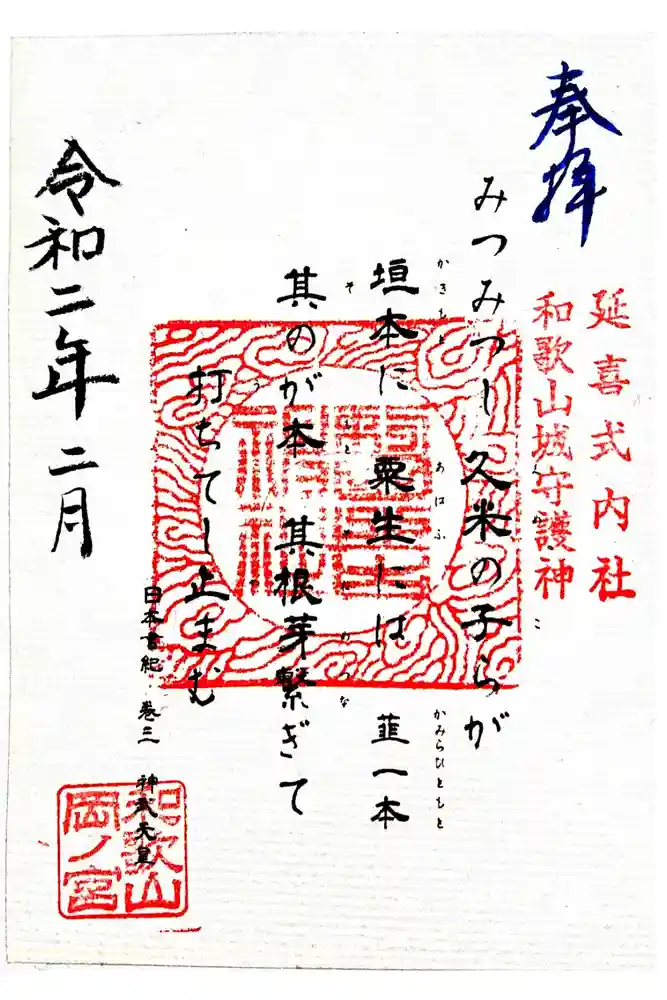 奉拝
延喜式内社
和歌山城守護神
みつみつし 久米の子らが
垣本に 粟生には 韮一本
かきもと あはふ かみらひともと
其のが本 其根芽繋ぎて
打ちてし止まむ
日本書紀・巻三 神武天皇
令和二年二月
和歌山
岡ノ宮